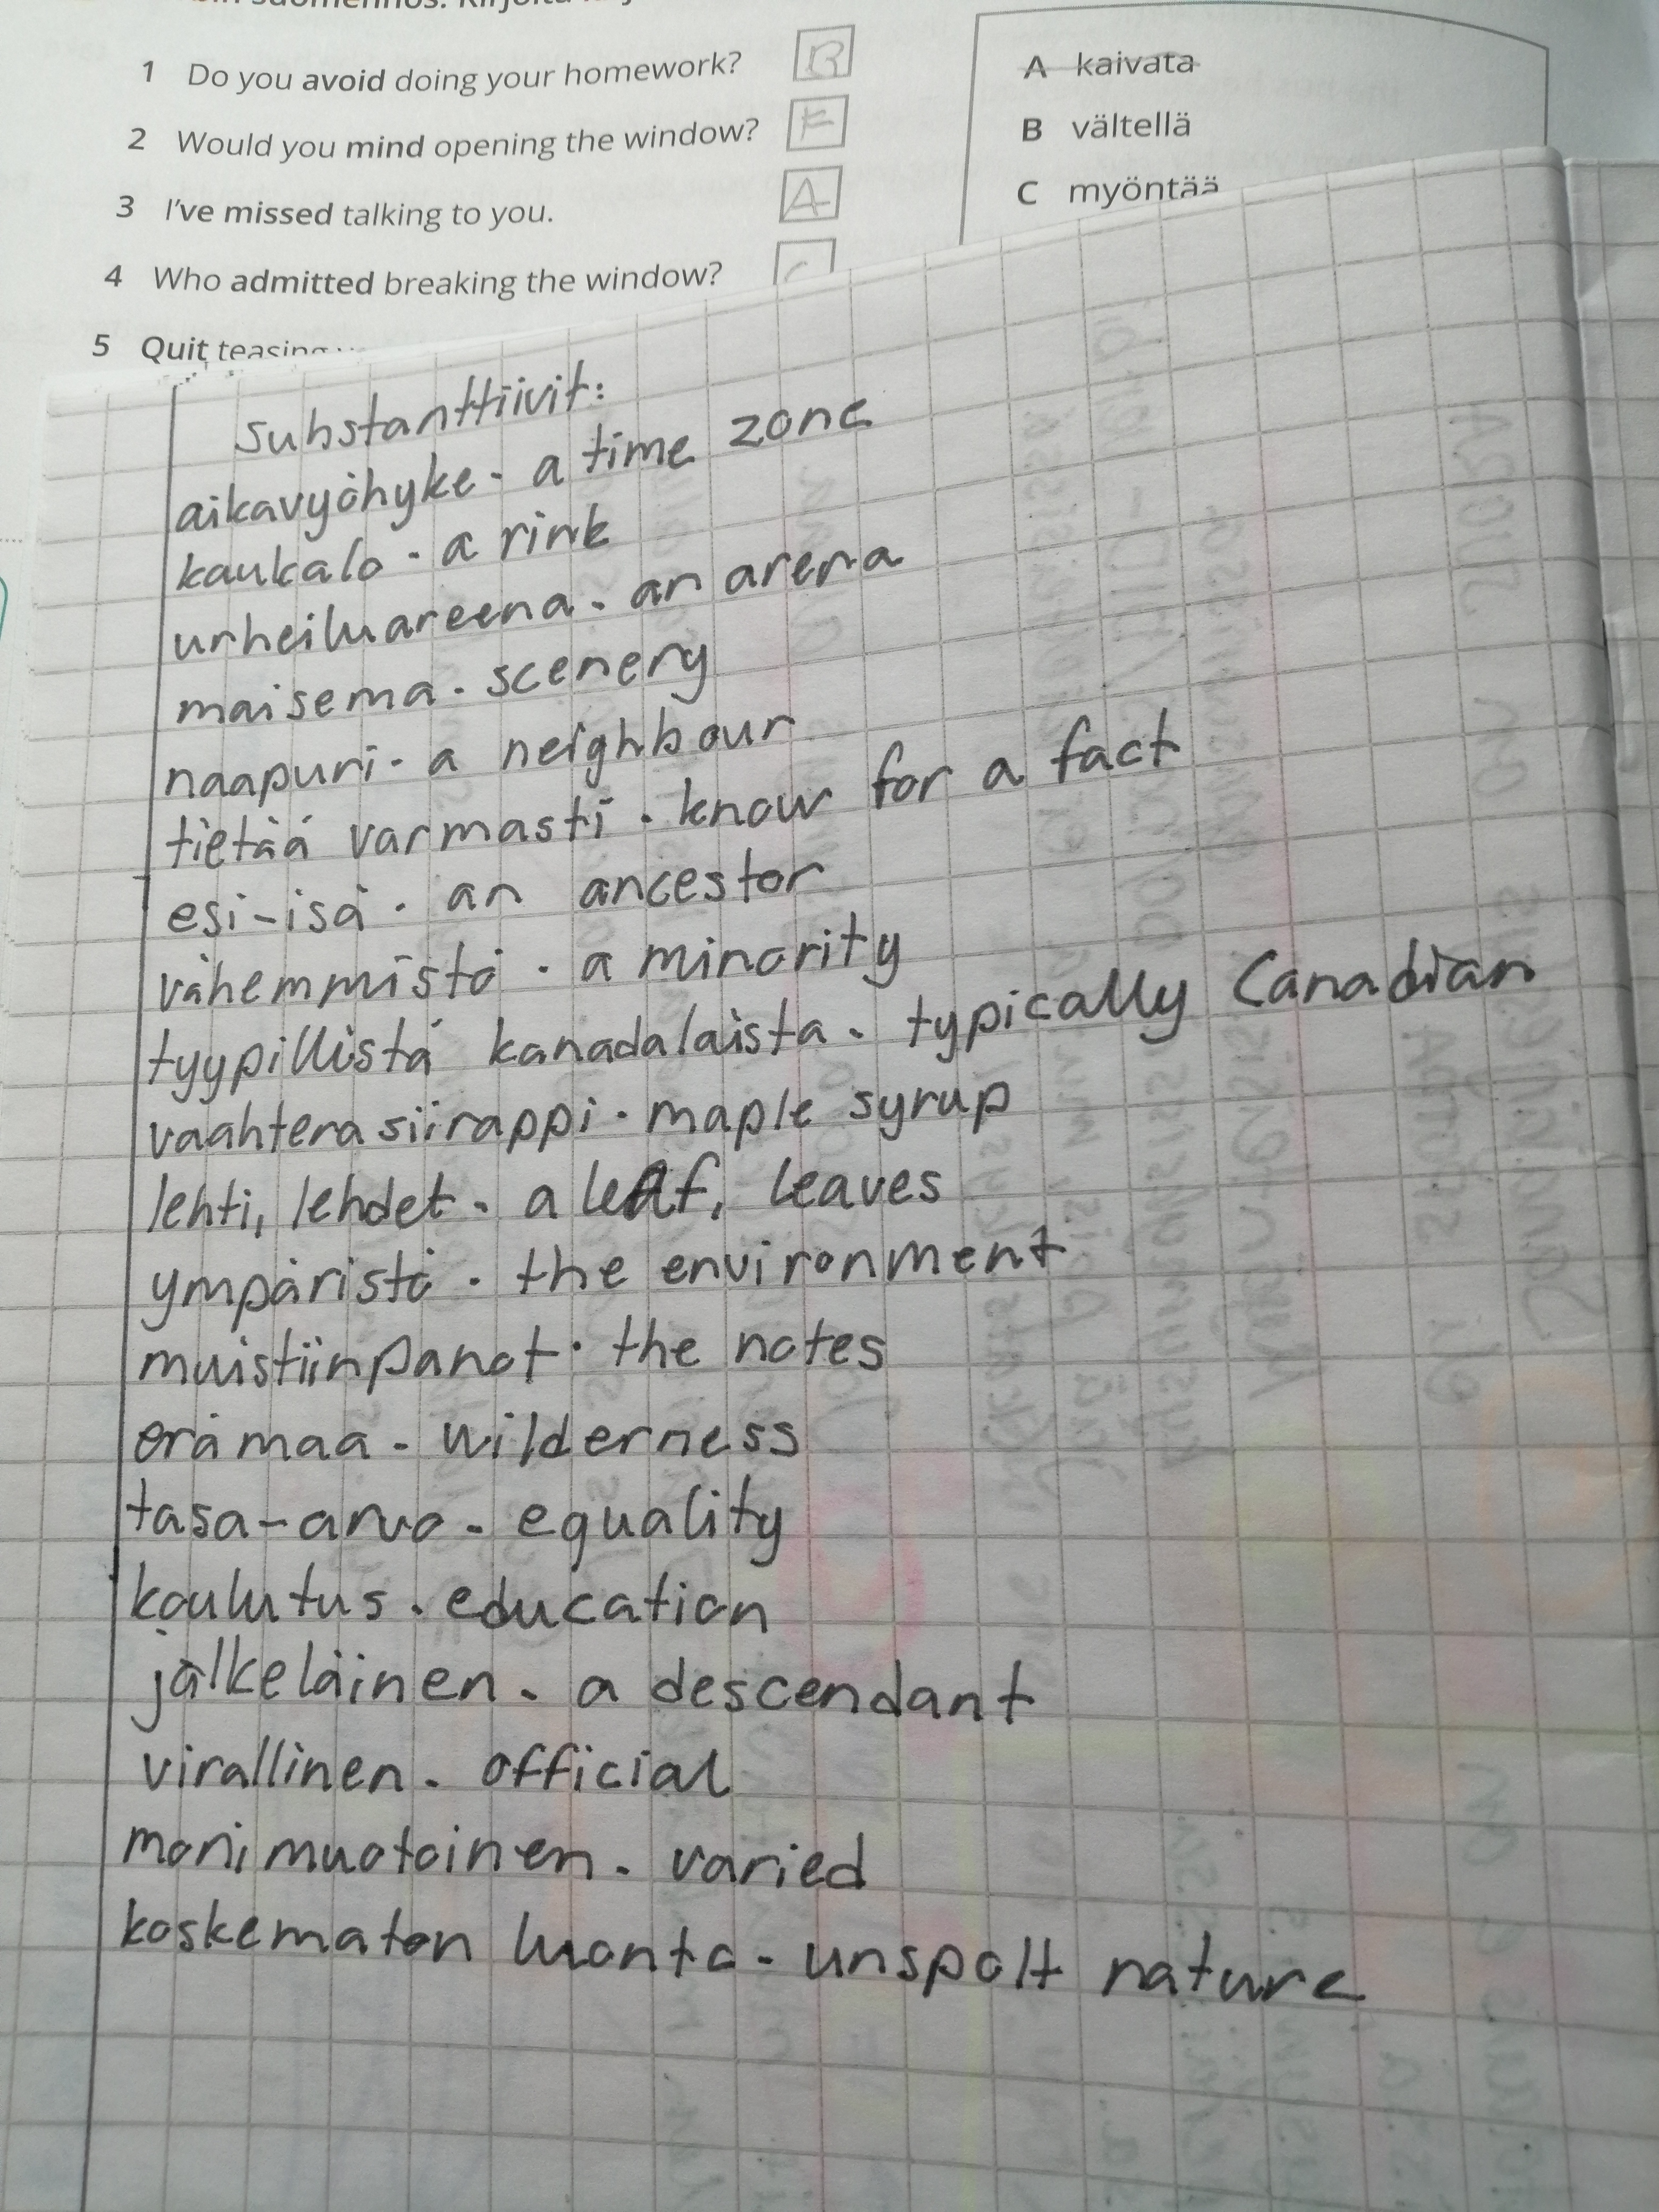 1 Do you avoid doing your homework? B
2 Would you mind opening the window? F
3 I've missed talking to you. A
4 Who admitted breaking the window?
5 Quit teasing
A kaivata
B vältellä
C myöntää
Substanttiivit:
aikavyöhyke - a time zone
kaukalo - a rink
urheiluareena - an arena
maisema - scenery
naapuri - a neighbour
tietää varmasti - know for a fact
esi-isä - an ancestor
vähemmistö - a minority
tyypillistä kanadalaista - typically Canadian
vaahterasiirappi - maple syrup
lehti, lehdet - a leaf, leaves
ympäristö - the environment
muistiinpanot - the notes
erämaa - wilderness
tasa-arvo - equality
koulutus - education
jälkeläinen - a descendant
virallinen - official
monimuotoinen - varied
koskematon luonto - unspolt nature